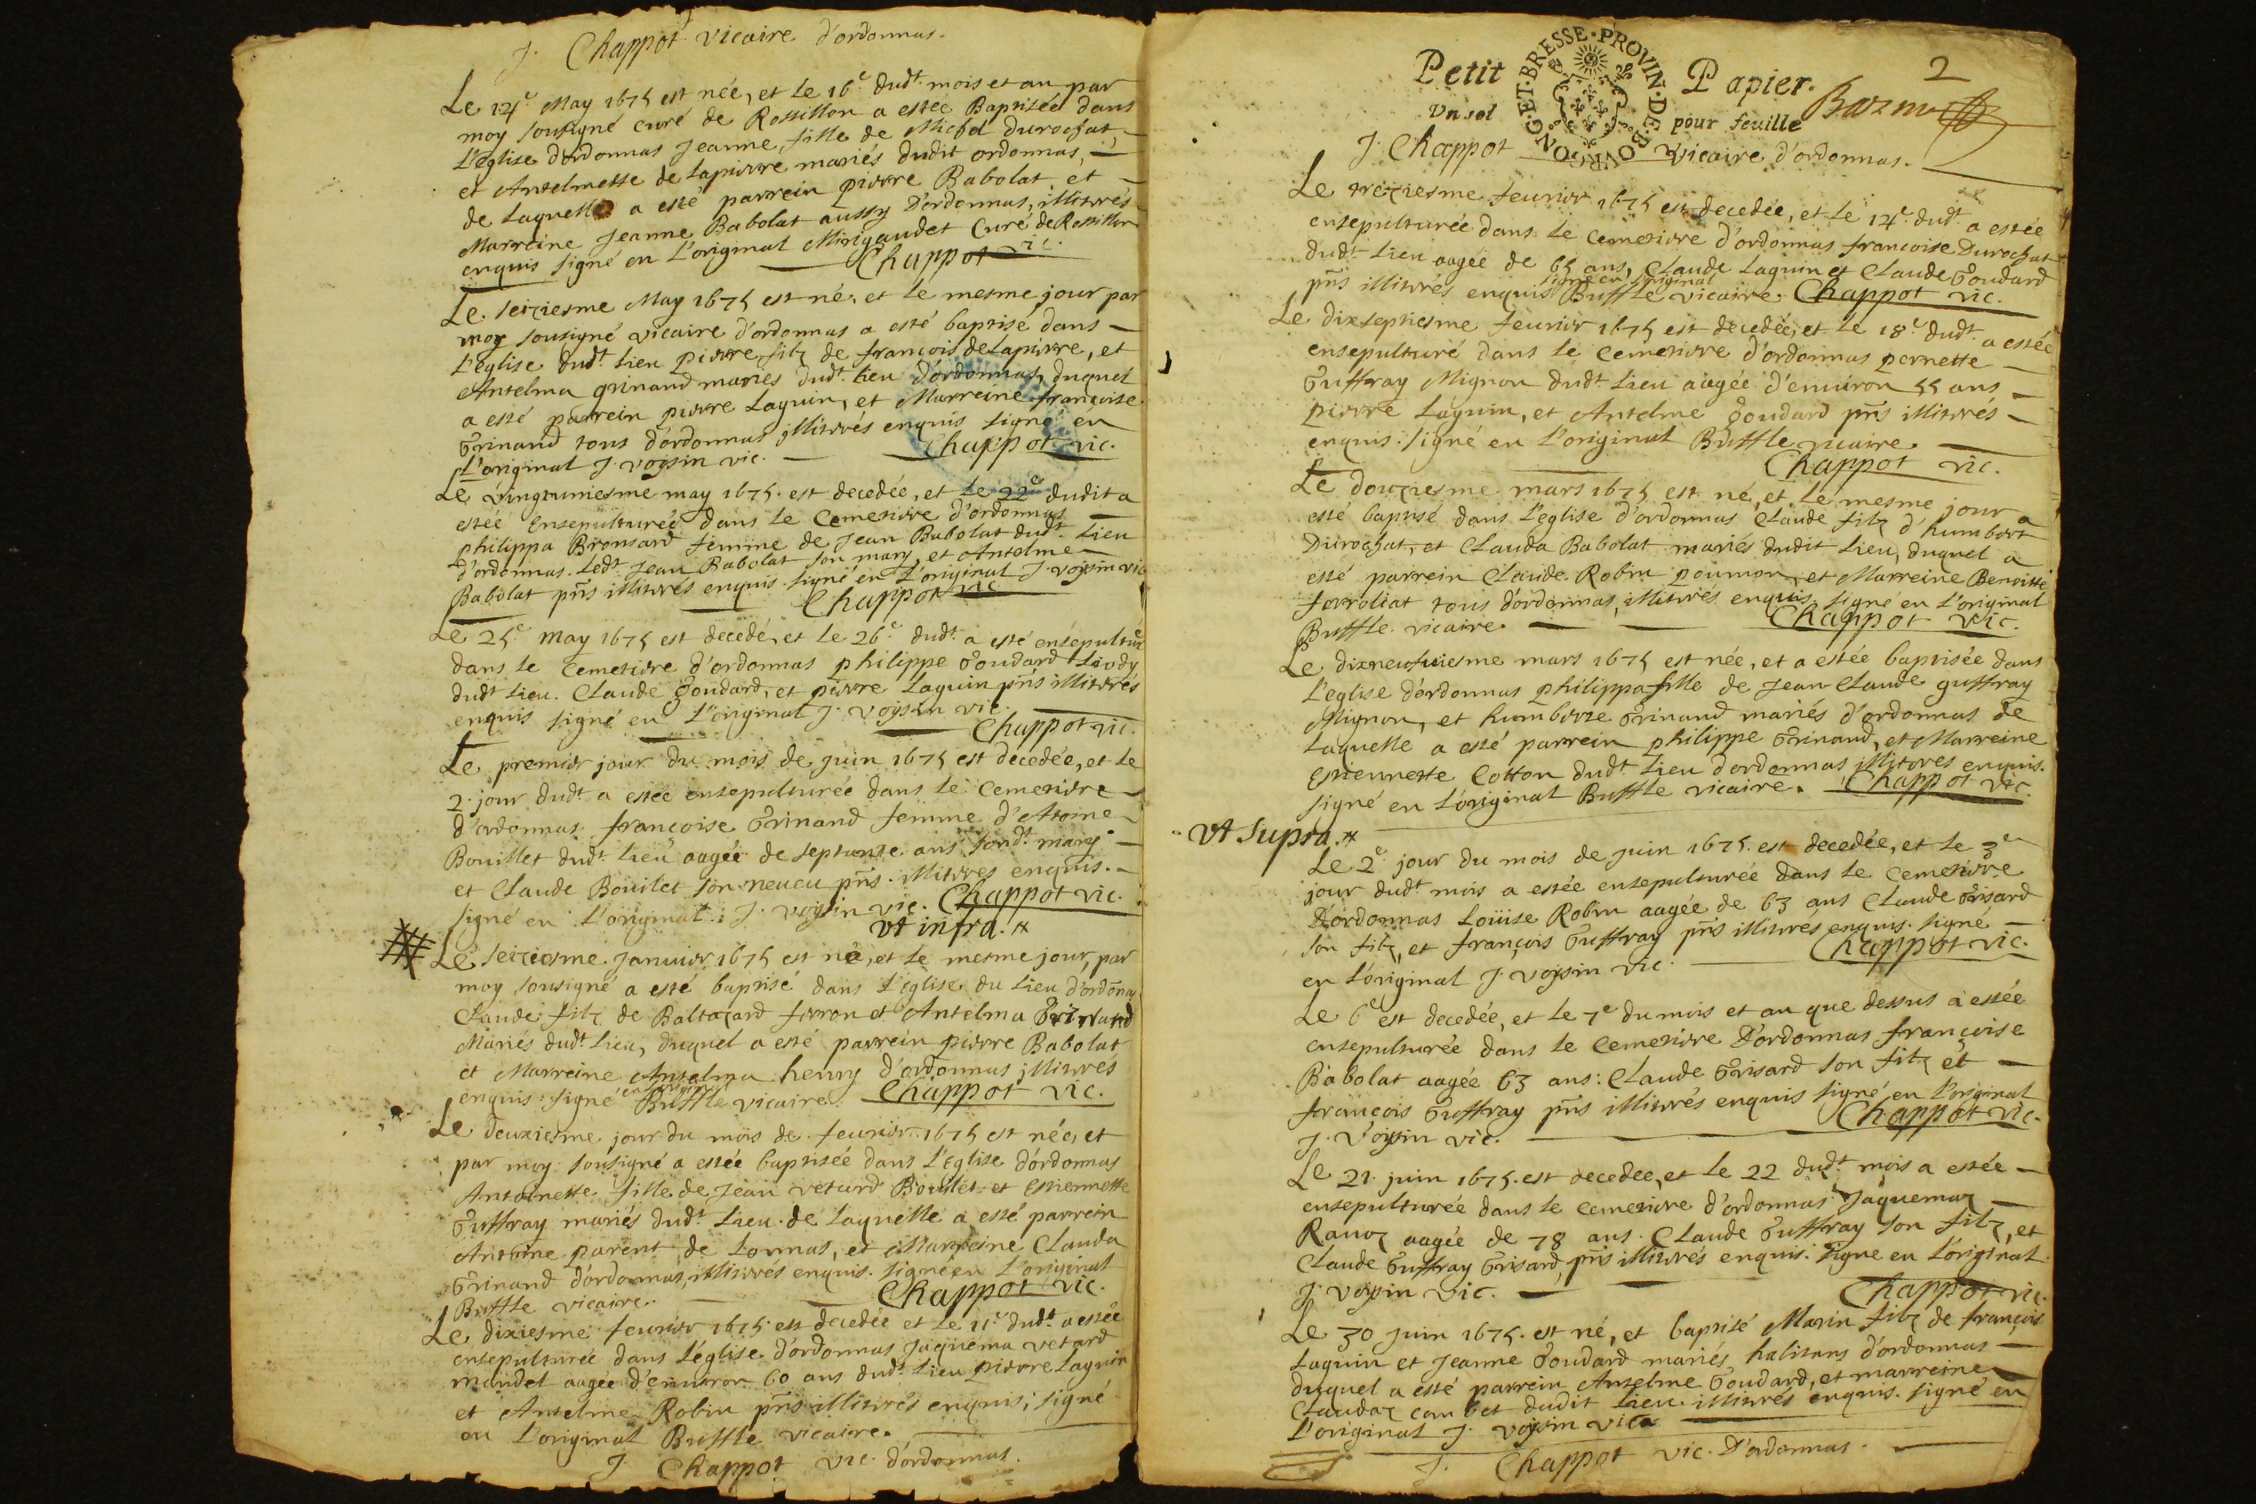 J. Chappot vicaire d'ordonnas.
Le 14e May 1675 est née, et le 16e dudt. mois et an par
moy sousigné curé de Rossillon a estée Baptisée dans
L'eglise d'ordonnas Jeanne, fille de Michel Durochat,
et Antelmette de Lapierre mariés dudit ordonnas,
de Laquelle a esté parrein pierre Babolat et
Marreine Jeanne Babolat aussy D'ordonnas, illitérés
enquis signé en L'original Curé de Rossillon
Chappot vic.
Le seiziesme May 1675 est né, et le mesme jour par
moy sousigné vicaire d'ordonnas a esté baptisé dans
L'eglise dudt. lieu pierre filz de françois de Lapierre, et
Antelma grinand mariés dudt. lieu d'ordonnas, duquel
a esté parrein pierre Laguin, et Marreine françoise
Grinand tous d'ordonnas illitérés enquis signé en
L'original J. voysin vic. Chappot vic.
Le vingtuniesme may 1675. est decedée, et le 22e dudit a
estée ensepulturée dans le Cemetiere d'ordonnas
philippa Bronsard femme de Jean Babolat dudt. Lieu
d'ordonnas. Ledt Jean Babolat son mary et Antelme
Babolat pñs illitérés enquis signé en L'original J. voysin vic
Chappot vic
Le 25e may 1675 est decedé, et le 26e dudt. a esté ensepulturé
dans le Cemetiere d'ordonnas philippe Goudard
dudt Lieu. Claude Goudard, et pierre Laguin pñs illitérés
enquis signé en L'original J. voysin vic.
Chappot vic.
Le premier jour du mois de juin 1675 est decedée, et le
2. jour dudt. a estée ensepulturée dans le Cemetiere
d'ordonnas françoise Grinand femme d'Antoine
Bouillet dudt. Lieu aagée de septante ans sondt. mary
et Claude Boüilet son neueu pñs. illitérés enquis.
signé en L'original J. voysin vic. Chappot vic.
vt infra.
Le seiziesme Januier 1675 est né, et le mesme jour, par
moy sousigné a esté baptisé dans L'eglise du Lieu d'ordonnas
Claude filz de Baltazard ferron et Antelma Grinand
Mariés dudt. Lieu, duquel a esté parrein pierre Babolat
et Marreine Antelma henry d'ordonnas illitérés
enquis signé en L'original Buffle vicaire. Chappot vic.
Le deuxiesme jour du mois de feurier 1675 est née, et
par moy sousigné a estée baptisée dans L'eglise d'ordonnas
Antoinette fille de Jean vetard Boulet et Estiennette
Guffray mariés dudt. Lieu de Laquelle a esté parrein
Antoine parent de Lonnas, et Marreine Clauda
Grinand d'ordonnas, illitérés enquis. signé en L'original
Buffle vicaire. Chappot vic.
Le dixiesme feurier 1675 est decedée et le 11e dudt. a estée
ensepulturée dans L'église d'ordonnas Jaquema vetard
mandet aagée d'enuiron 60 ans dudt. Lieu pierre Laguin
et Antelme Robin pñs illitérés enquis; signé
en L'original Buffle vicaire.
J. Chappot vic. d'ordonnas.
Petit Papier. 2
Vn sol pour feuille
PROVIN. DE. BOVRGONG. ET. BRESSE.
J. Chappot Vicaire d'ordonnas.
Le treiziesme feurier 1675 est decedée, et le 14e. dudt a estée
ensepulturée dans le Cemetiere d'ordonnas francoise Durochat
dudt. Lieu aagée de 65 ans, Claude Laguin et Claude Goudard
pñs illitérés enquis signé en L'original Buffle vicaire. Chappot vic.
Le dixseptiesme feurier 1675 est decedée, et le 18e. dudt. a estée
ensepulturé dans le Cemetiere d'ordonnas pernette
Guffray Mignon dudt Lieu aagée d'enuiron 55 ans
pierre Laguin, et Antelme Goudard pñs illitérés
enquis signé en L'original Buffle vicaire.
Chappot vic.
Le douziesme mars 1675 est né, et le mesme jour a
esté baptisé dans L'eglise d'ordonnas Claude filz d'humbert
Durochat, et Clauda Babolat mariés dudit Lieu, duquel a
esté parrein Claude Robin poumon, et Marreine Benoitte
ferroliat tous d'ordonnas, illitérés enquis signé en L'original
Buffle vicaire. Chappot vic.
Le dixneufuiesme mars 1675 est née, et a estée baptisée dans
L'eglise d'ordonnas philippa fille de Jean Claude guffray
Mignon, et humberte Grinand mariés d'ordonnas de
Laquelle a esté parrein philippe Grinand, et Marreine
Estiennette Cotton dudt. Lieu d'ordonnas illitérés enquis.
signé en L'original Buffle vicaire. Chappot vic.
Vt Supra.
Le 2e jour du mois de juin 1675. est decedée, et le 3e
jour dudt mois a estée ensepulturée dans le Cemetiere
D'ordonnas Loüise Robin aagée de 63 ans Claude Grisard
son filz, et françois Guffray pñs illitérés enquis. signé
en L'original J. voysin vic. Chappot vic.
Le 6e est decedée, et le 7e du mois et an que dessus a estée
ensepulturée dans le Cemetiere D'ordonnas françoise
Babolat aagée 63 ans: Claude Grisard son filz et
françois Guffray pñs illitérés enquis signé en L'original
J. Voysin vic. Chappot vic.
Le 21 juin 1675. est decedée, et le 22 dudt. mois a estée
ensepulturée dans le Cemetiere d'ordonnas Jaquemaz
Rauoz aagée de 78 ans. Claude Guffray son filz, et
Claude Guffray Grisard, pñs illitérés enquis. signé en L'original
J. voysin Vic. Chappot vic.
Le 30 juin 1675. est né, et baptisé Marin filz de françois
Laguin et Jeanne Goudard mariés, habitans d'ordonnas
duquel a esté parrein Antelme Goudard, et marreine
Claudaz combet dudit Lieu illitérés enquis. signé en
L'original J. voysin vic
J. Chappot vic. D'ordonnas.